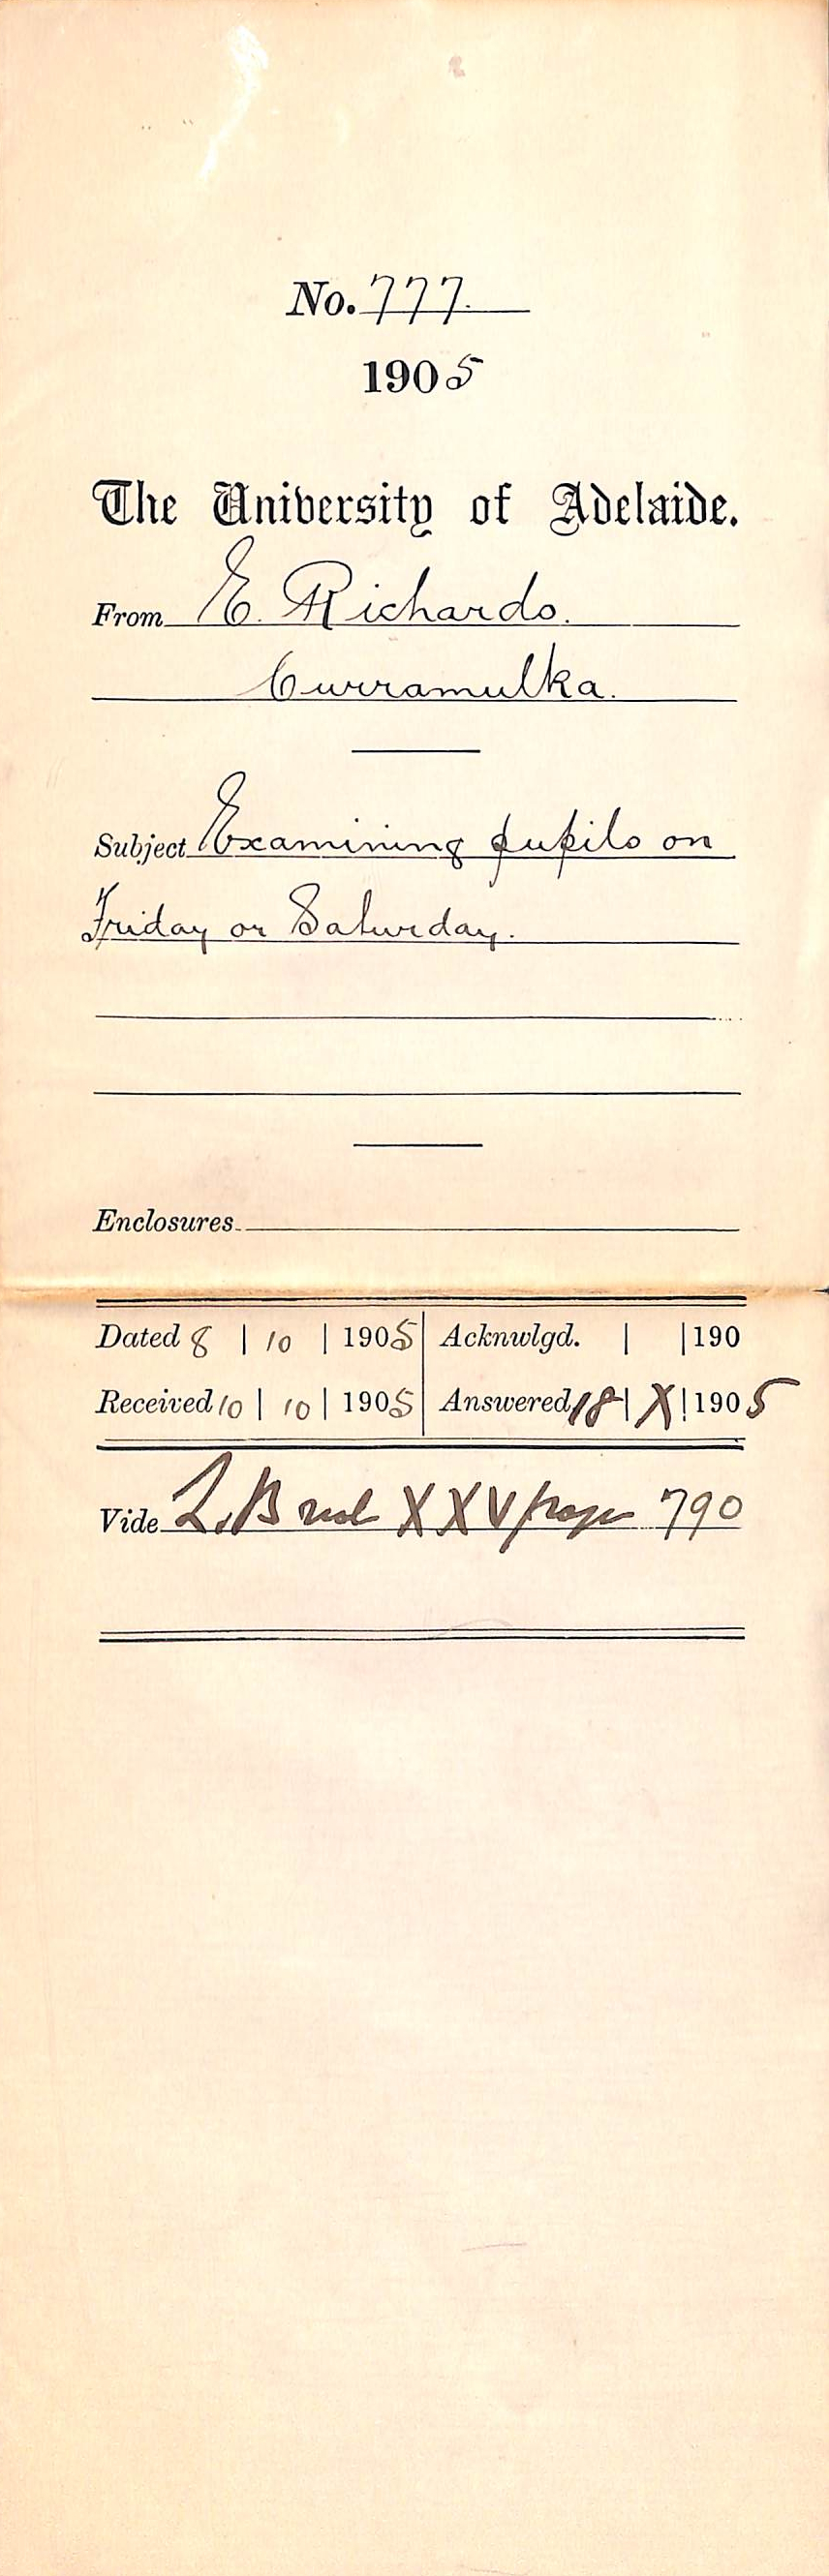 No. 777.
1905
The University of Adelaide.
From E. Richards.
Curramulka.
Subject Examining pupils on
Friday or Saturday.
Enclosures
Dated 8 | 10 | 1905 | Acknwlgd. | | 190
Received 10 | 10 | 1905 | Answered 18 | X | 1905
Vide L.B vol XXV page 790